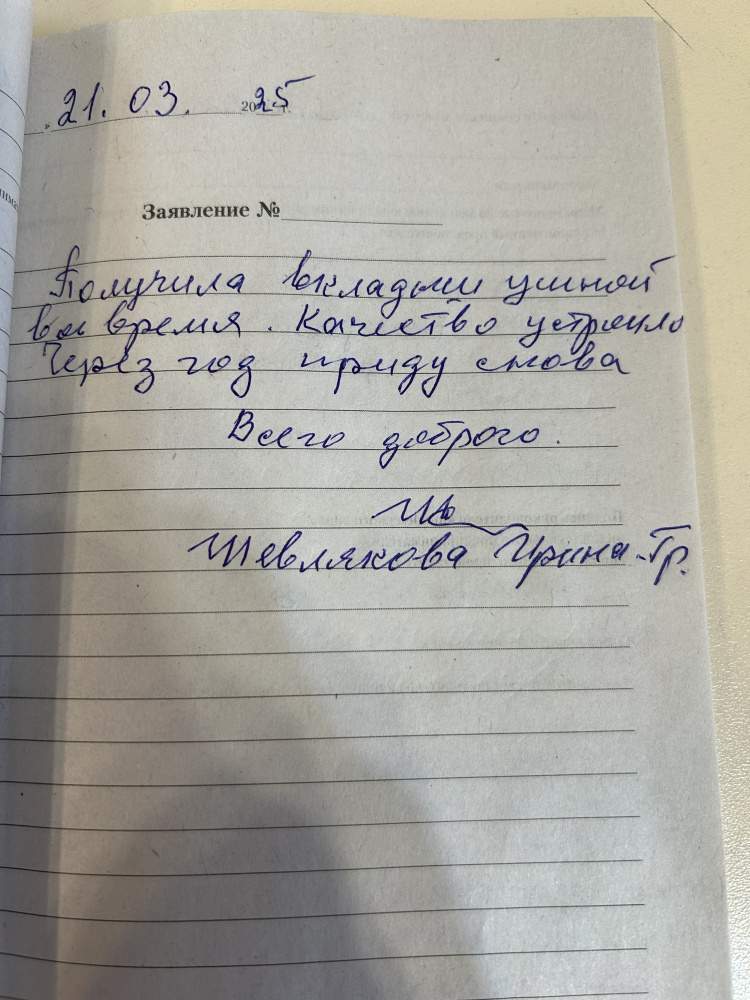 21. 03. 2025 г.
Заявление №
Получила вкладыш ушной
во время. Качество устроило
Через год приду снова
Всего доброго.
Шевлякова Ирина Гр.